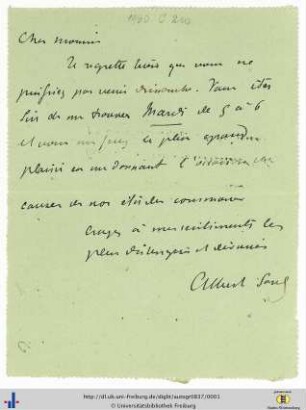 Cher monsieur
Je regrette bien que vous ne
puissiez pas venir dimanche. Vous êtes
sûr de me trouver Mardi de 5 à 6
et vous me ferez le plus grand
plaisir en me donnant l'occasion de
causer de nos études communes
Croyez à mes sentiments les
plus distingués et dévoués
Albert
http://dl.ub.uni-freiburg.de/diglit/autogr0837/0001
© Universitätsbibliothek Freiburg